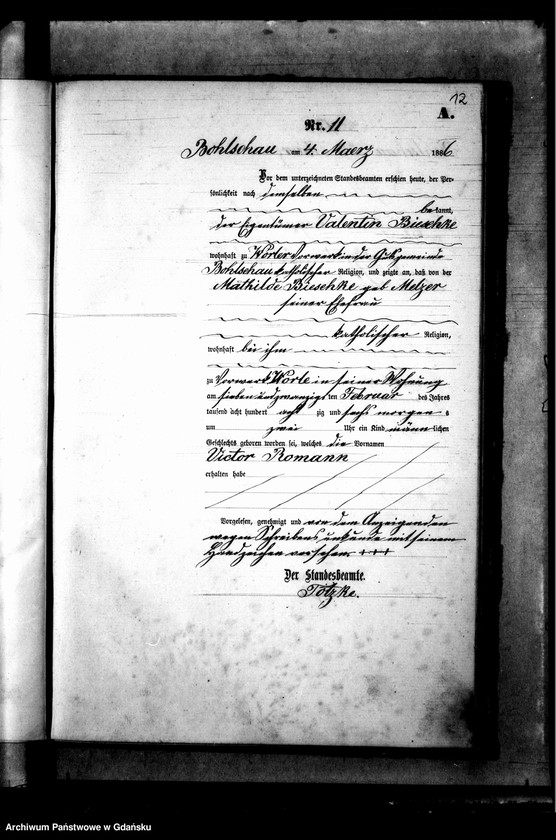 12
A.
Nr. 11
Bohlschau am 4. Maerz 1886
Vor dem unterzeichneten Standesbeamten erschien heute, der Per-
sönlichkeit nach demselben
bekannt,
der Eigentümer Valentin Bieschke
wohnhaft zu Worler Vorwerk in der Gutsgemeinde
Bohlschau katholischer Religion, und zeigte an, daß von der
Mathilde Bieschke geb Melzer
seiner Ehefrau
katholischer Religion,
wohnhaft bei ihm
zu Vorwerk Worle in seiner Wohnung
am sieben und zwanzigsten Februar des Jahres
tausend acht hundert acht zig und sechs morgens
um zwei Uhr ein Kind männlichen
Geschlechts geboren worden sei, welches die Vornamen
Victor Romann
erhalten habe
Vorgelesen, genehmigt und von dem Anzeigenden
wegen Schreibensunkunde mit seinem
Handzeichen versehen +++
Der Standesbeamte.
Totzke.
Archiwum Państwowe w Gdańsku